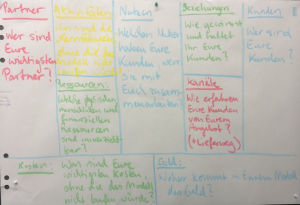 Partner
wer sind
Eure
wichtigsten
Partner?
Aktivitäten
Ressourcen:
Welche physischen,
menschlichen und
finanziellen
Ressourcen
sind
Nutzen
Welchen Nutzen
haben Eure
Kunden wenn
Sie mit
Euch zusam-
menarbeiten?
Beziehungen
Wie gewinnt
und haltet
Ihr Eure
Kunden?
Kanäle
Wie erfahren
Eure Kunden
von Eurem
Angebot?
(+Lieferung)
Kunden
Wer sind
Eure
Kunden?
Kosten:
Was sind Eure
wichtigsten Kosten,
ohne die das Modell
nicht laufen würde?
Geld:
Woher kommt in Eurem Modell
das Geld?